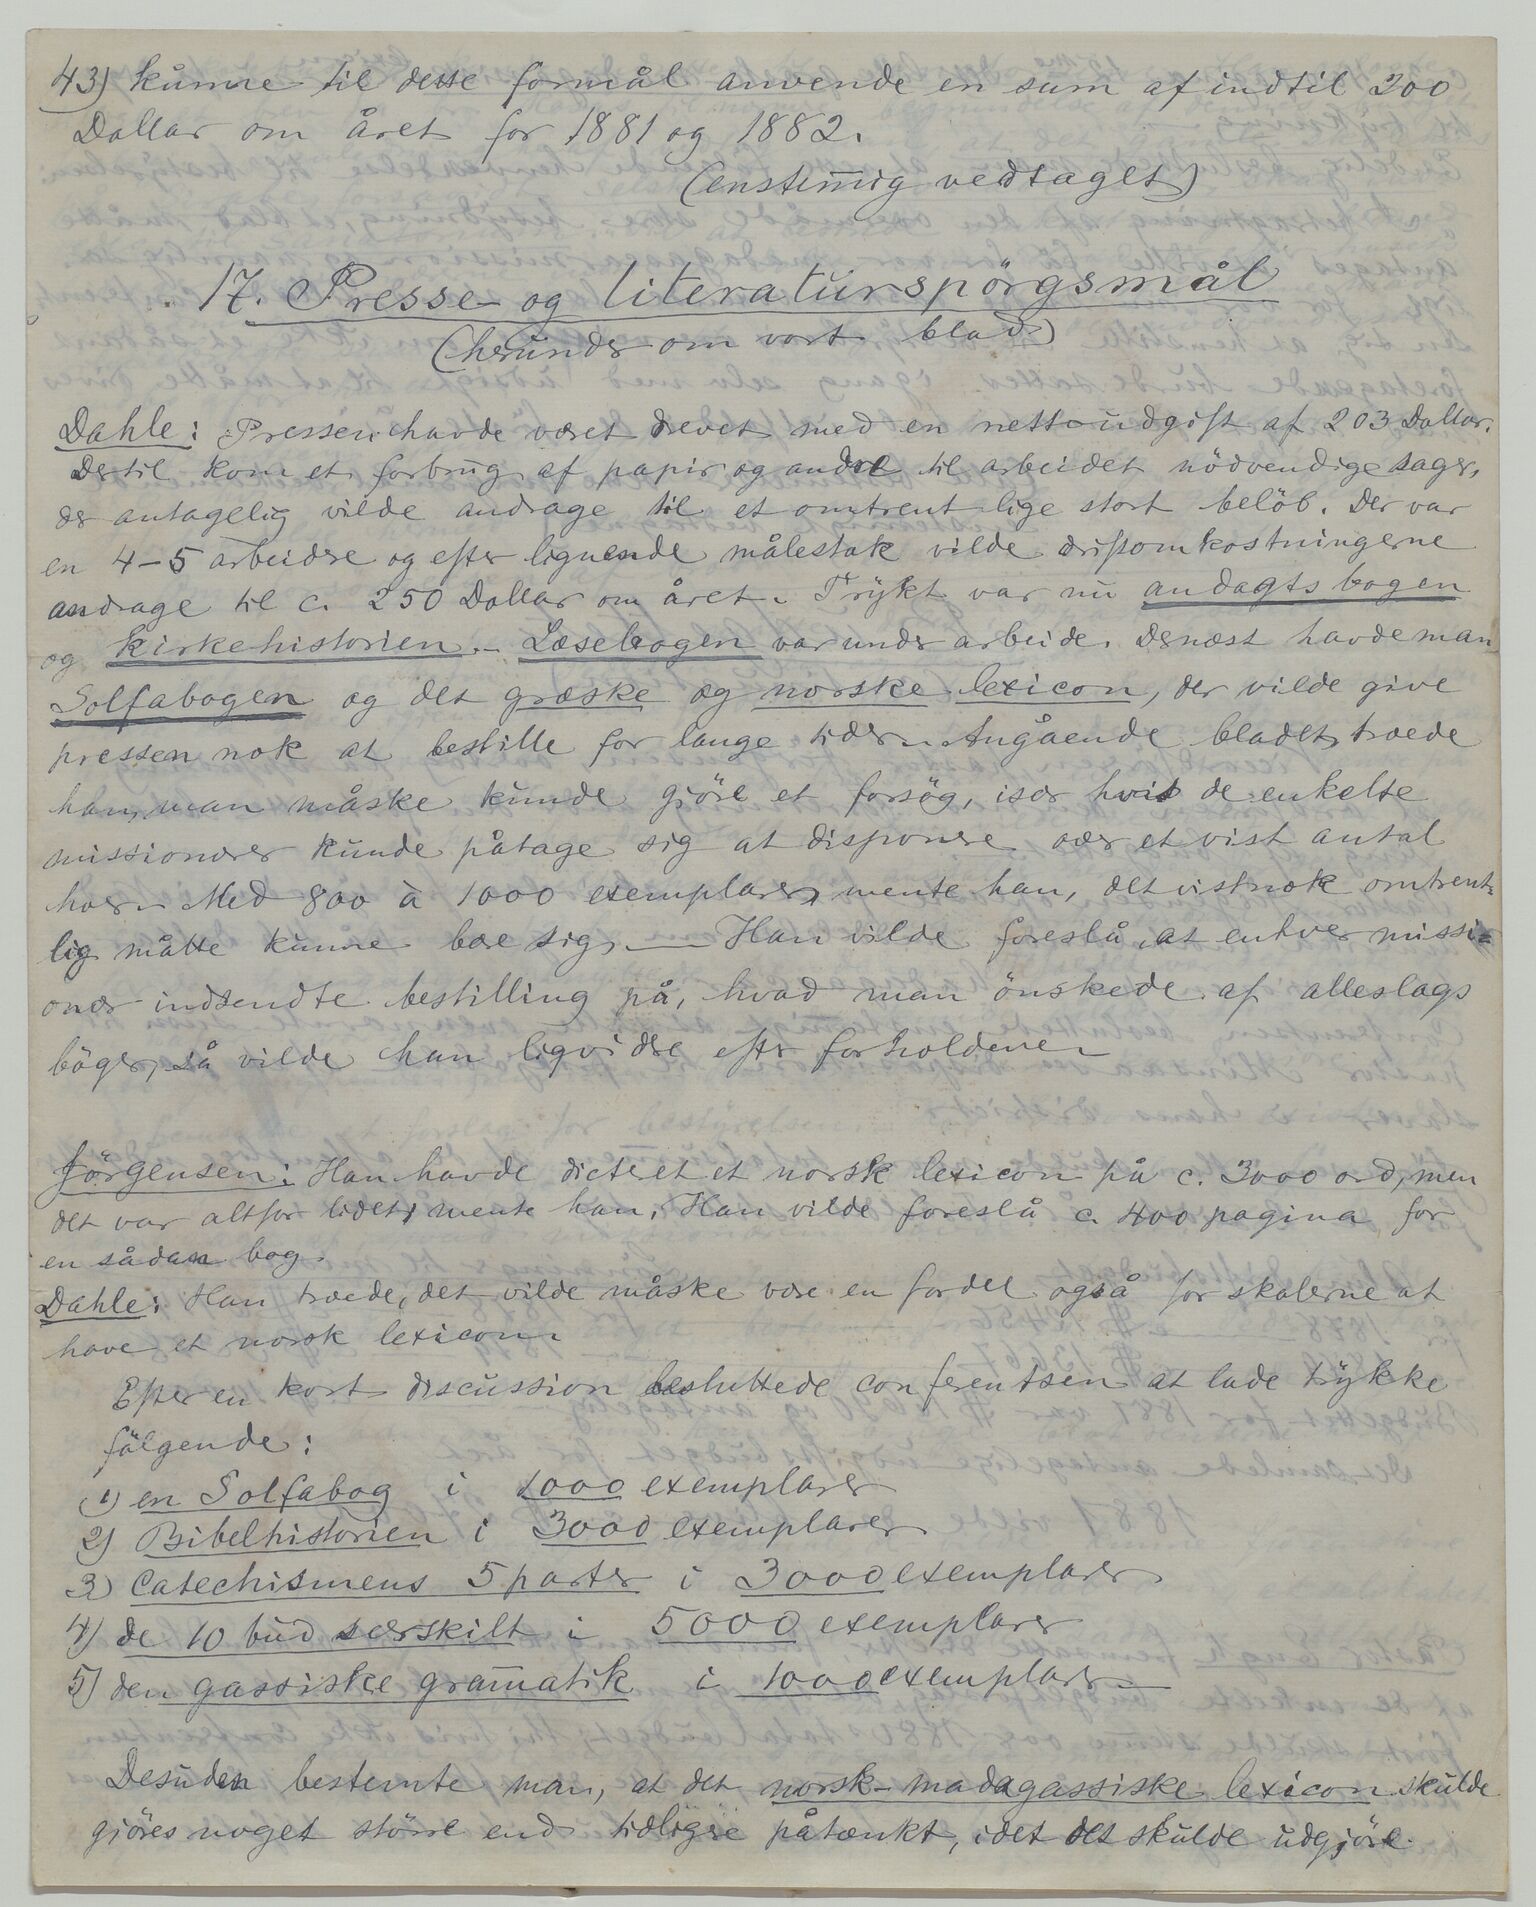 43) kunne til dette formål anvende en sum af indtil 200
Dollar om året for 1881 og 1882.
(enstemmig vedtaget)
17. Presse- og literaturspörgsmål
(herunder om vort blad)
Dahle: Pressen havde været drevet med en netto-udgift af 203 Dollar.
Dertil kom et forbrug af papir og andre til arbeidet nödvendige sager,
der antagelig vilde andrage til et omtrent lige stort belöb. Der var
en 4-5 arbeidere og efter lignende målestok vilde driftsomkostningerne
andrage til c. 250 Dollar om året. Trykt var nu andagtsbogen
og kirkehistorien. - Læsebogen var under arbeide. Dernæst havde man
Solfabogen og det græske og norske lexicon, der vilde give
pressen nok at bestille for lange tider. Angående bladet, troede
han, man måske kunde gjöre et forsög, især hvis de enkelte
missionærer kunde påtage sig at disponere over et vist antal
hver. Med 800 à 1000 exemplarer, mente han, det vistnok omtrent-
lig måtte kunne bære sig. — Han vilde foreslå, at enhver missi-
onær indsendte bestilling på, hvad man önskede af alleslags
böger, så vilde han liqvidere efter forholdene.
Jörgensen: Han havde dicteret et norsk lexicon på c. 3000 ord, men
det var altfor lidet, mente han. Han vilde foreslå c. 400 pagina for
en sådan bog.
Dahle: Han troede, det vilde måske være en fordel også for skolerne at
have et norsk lexicon.
Efter en kort discussion besluttede conferentsen at lade trykke
fölgende:
1) en Solfabog i 1000 exemplarer
2) Bibelhistorien i 3000 exemplarer
3) Catechismens 5 parter i 3000 exemplarer
4) de 10 bud særskilt i 5000 exemplarer
5) den gassiske gramatik i 1000 exemplarer.
Desuden bestemte man, at det norsk-madagassiske lexicon skulde
gjöres noget större end tidligere påtænkt, idet det skulde udgjöre